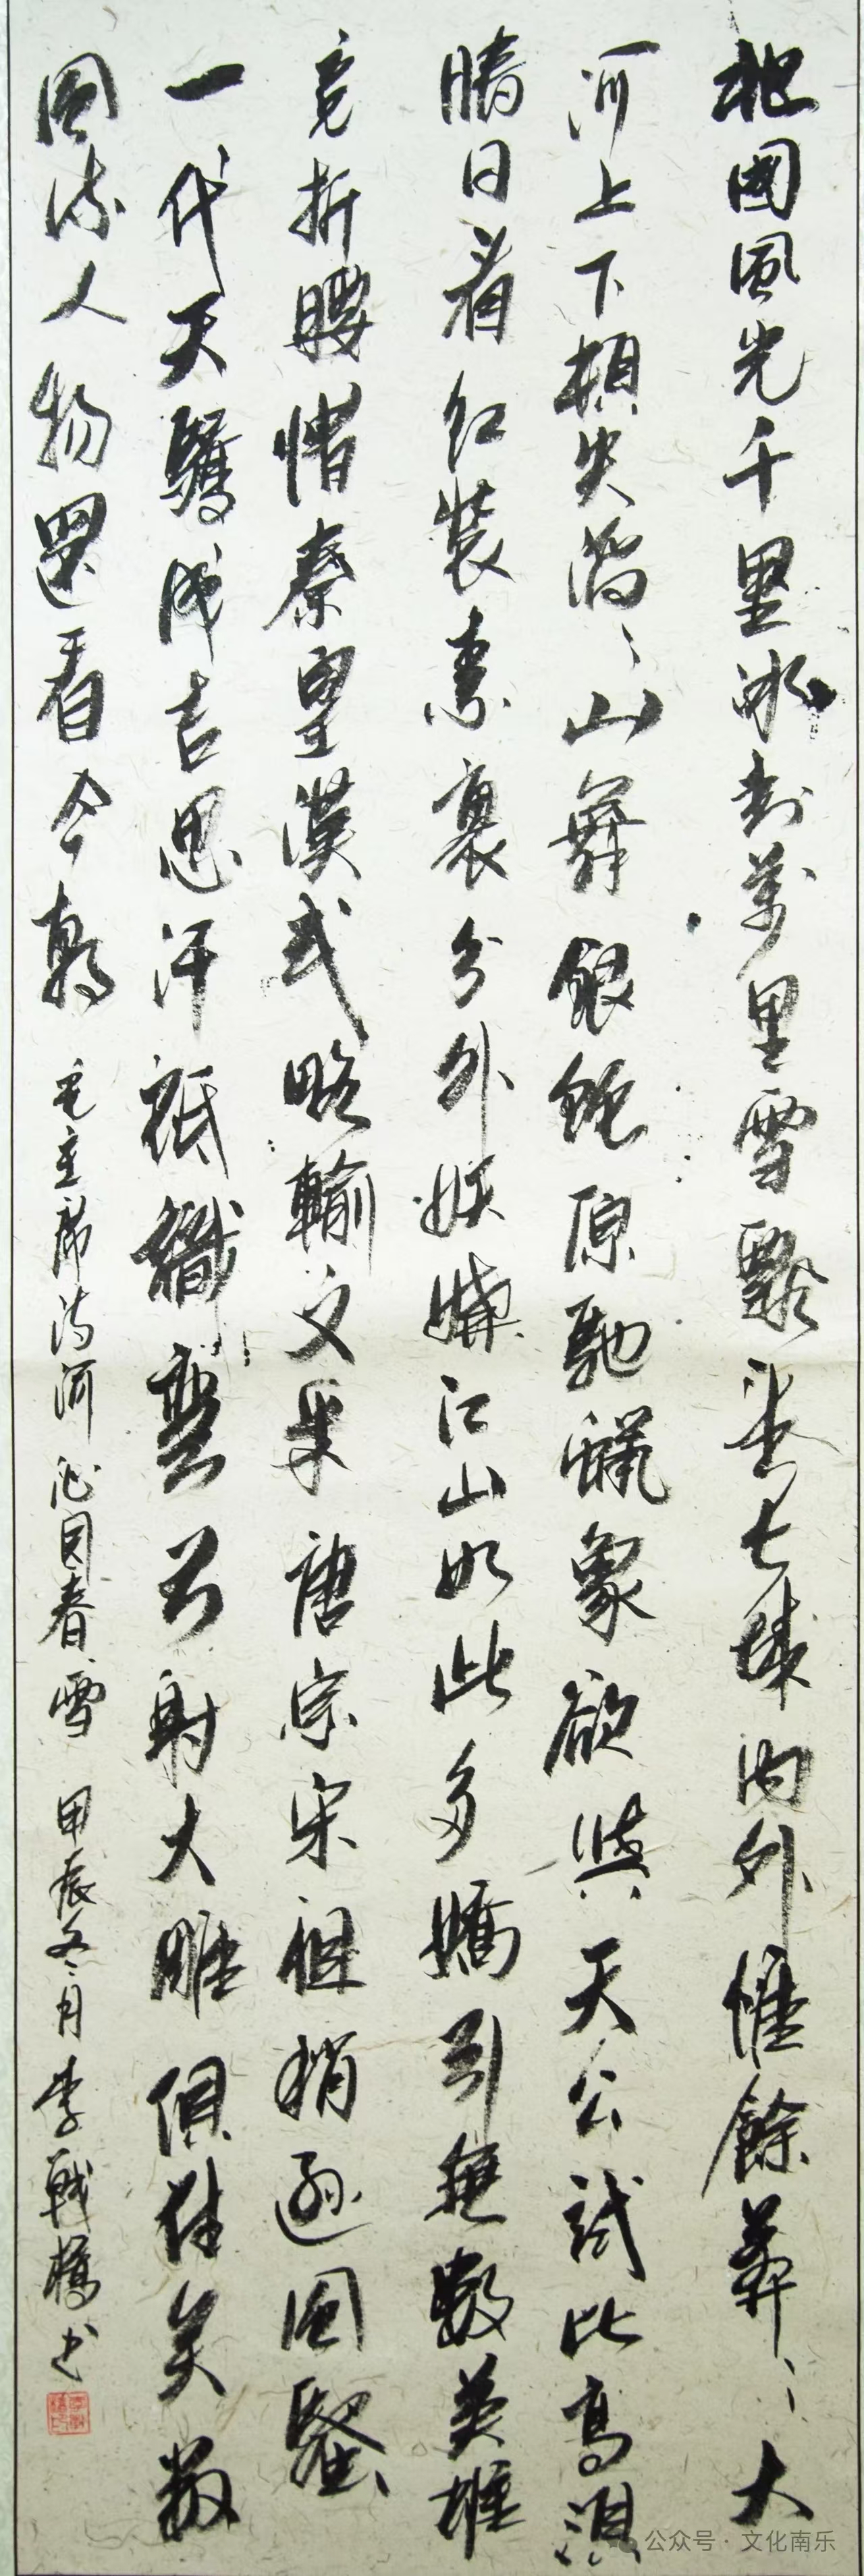 北國風光千里冰封萬里雪飄望長城內外惟餘莽〻大
河上下頓失滔〻山舞銀蛇原馳蠟象欲與天公試比高須
晴日看紅裝素裹分外妖嬈江山如此多嬌引無數英雄
竞折腰惜秦皇漢武略輸文采唐宗宋祖稍遜風騷
一代天驕成吉思汗祇識彎弓射大雕俱往矣數
風流人物還看今朝 毛主席詩詞沁园春雪 甲辰冬月李戰書
公众号·文化南乐